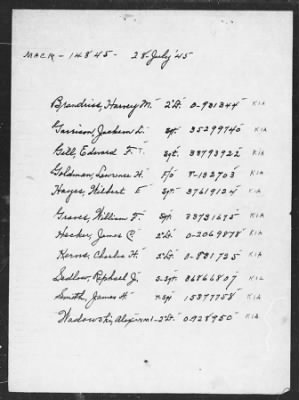 MACR - 14845 - 28 July '45
Brandriss, Harvey M. 2"Lt. 0-931344 KIA
Garrison, Jackson L. Sgt. 35299740 KIA
Gill, Edward F. Sgt. 33793922 KIA
Goldman, Lawrence H. F/O T-132703 KIA
Hayes, Wilbert E Sgt. 37619134 KIA
Graves, William F. Sgt. 33731675 KIA
Hecker, James C. 2"Lt. 0-2069878 KIA
Kerns, Charles H. 2"Lt. 0-831735 KIA
Sadlow, Raphael J. S.Sgt. 36866807 KIA
Smith, James H. T.Sgt 15377758 KIA
2"Lt. 0-928950 KIA